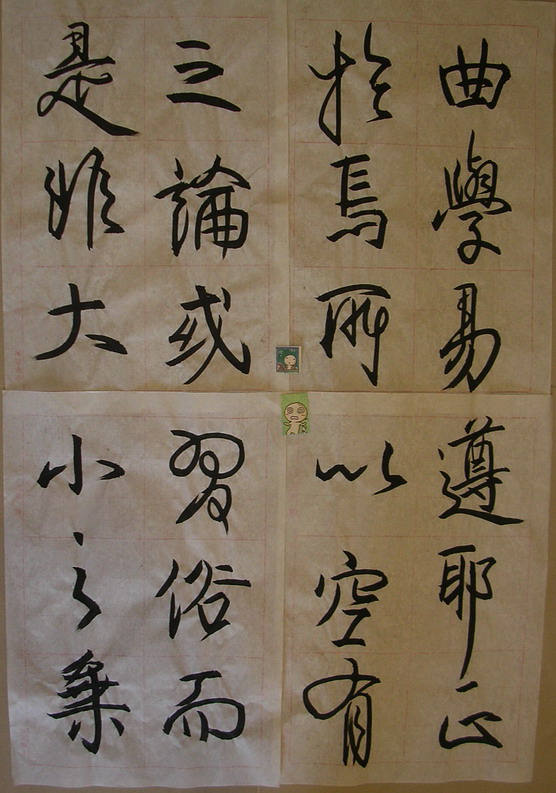 曲學易遵耶正
於焉所以空有
之論或習俗而
是非大小之乗